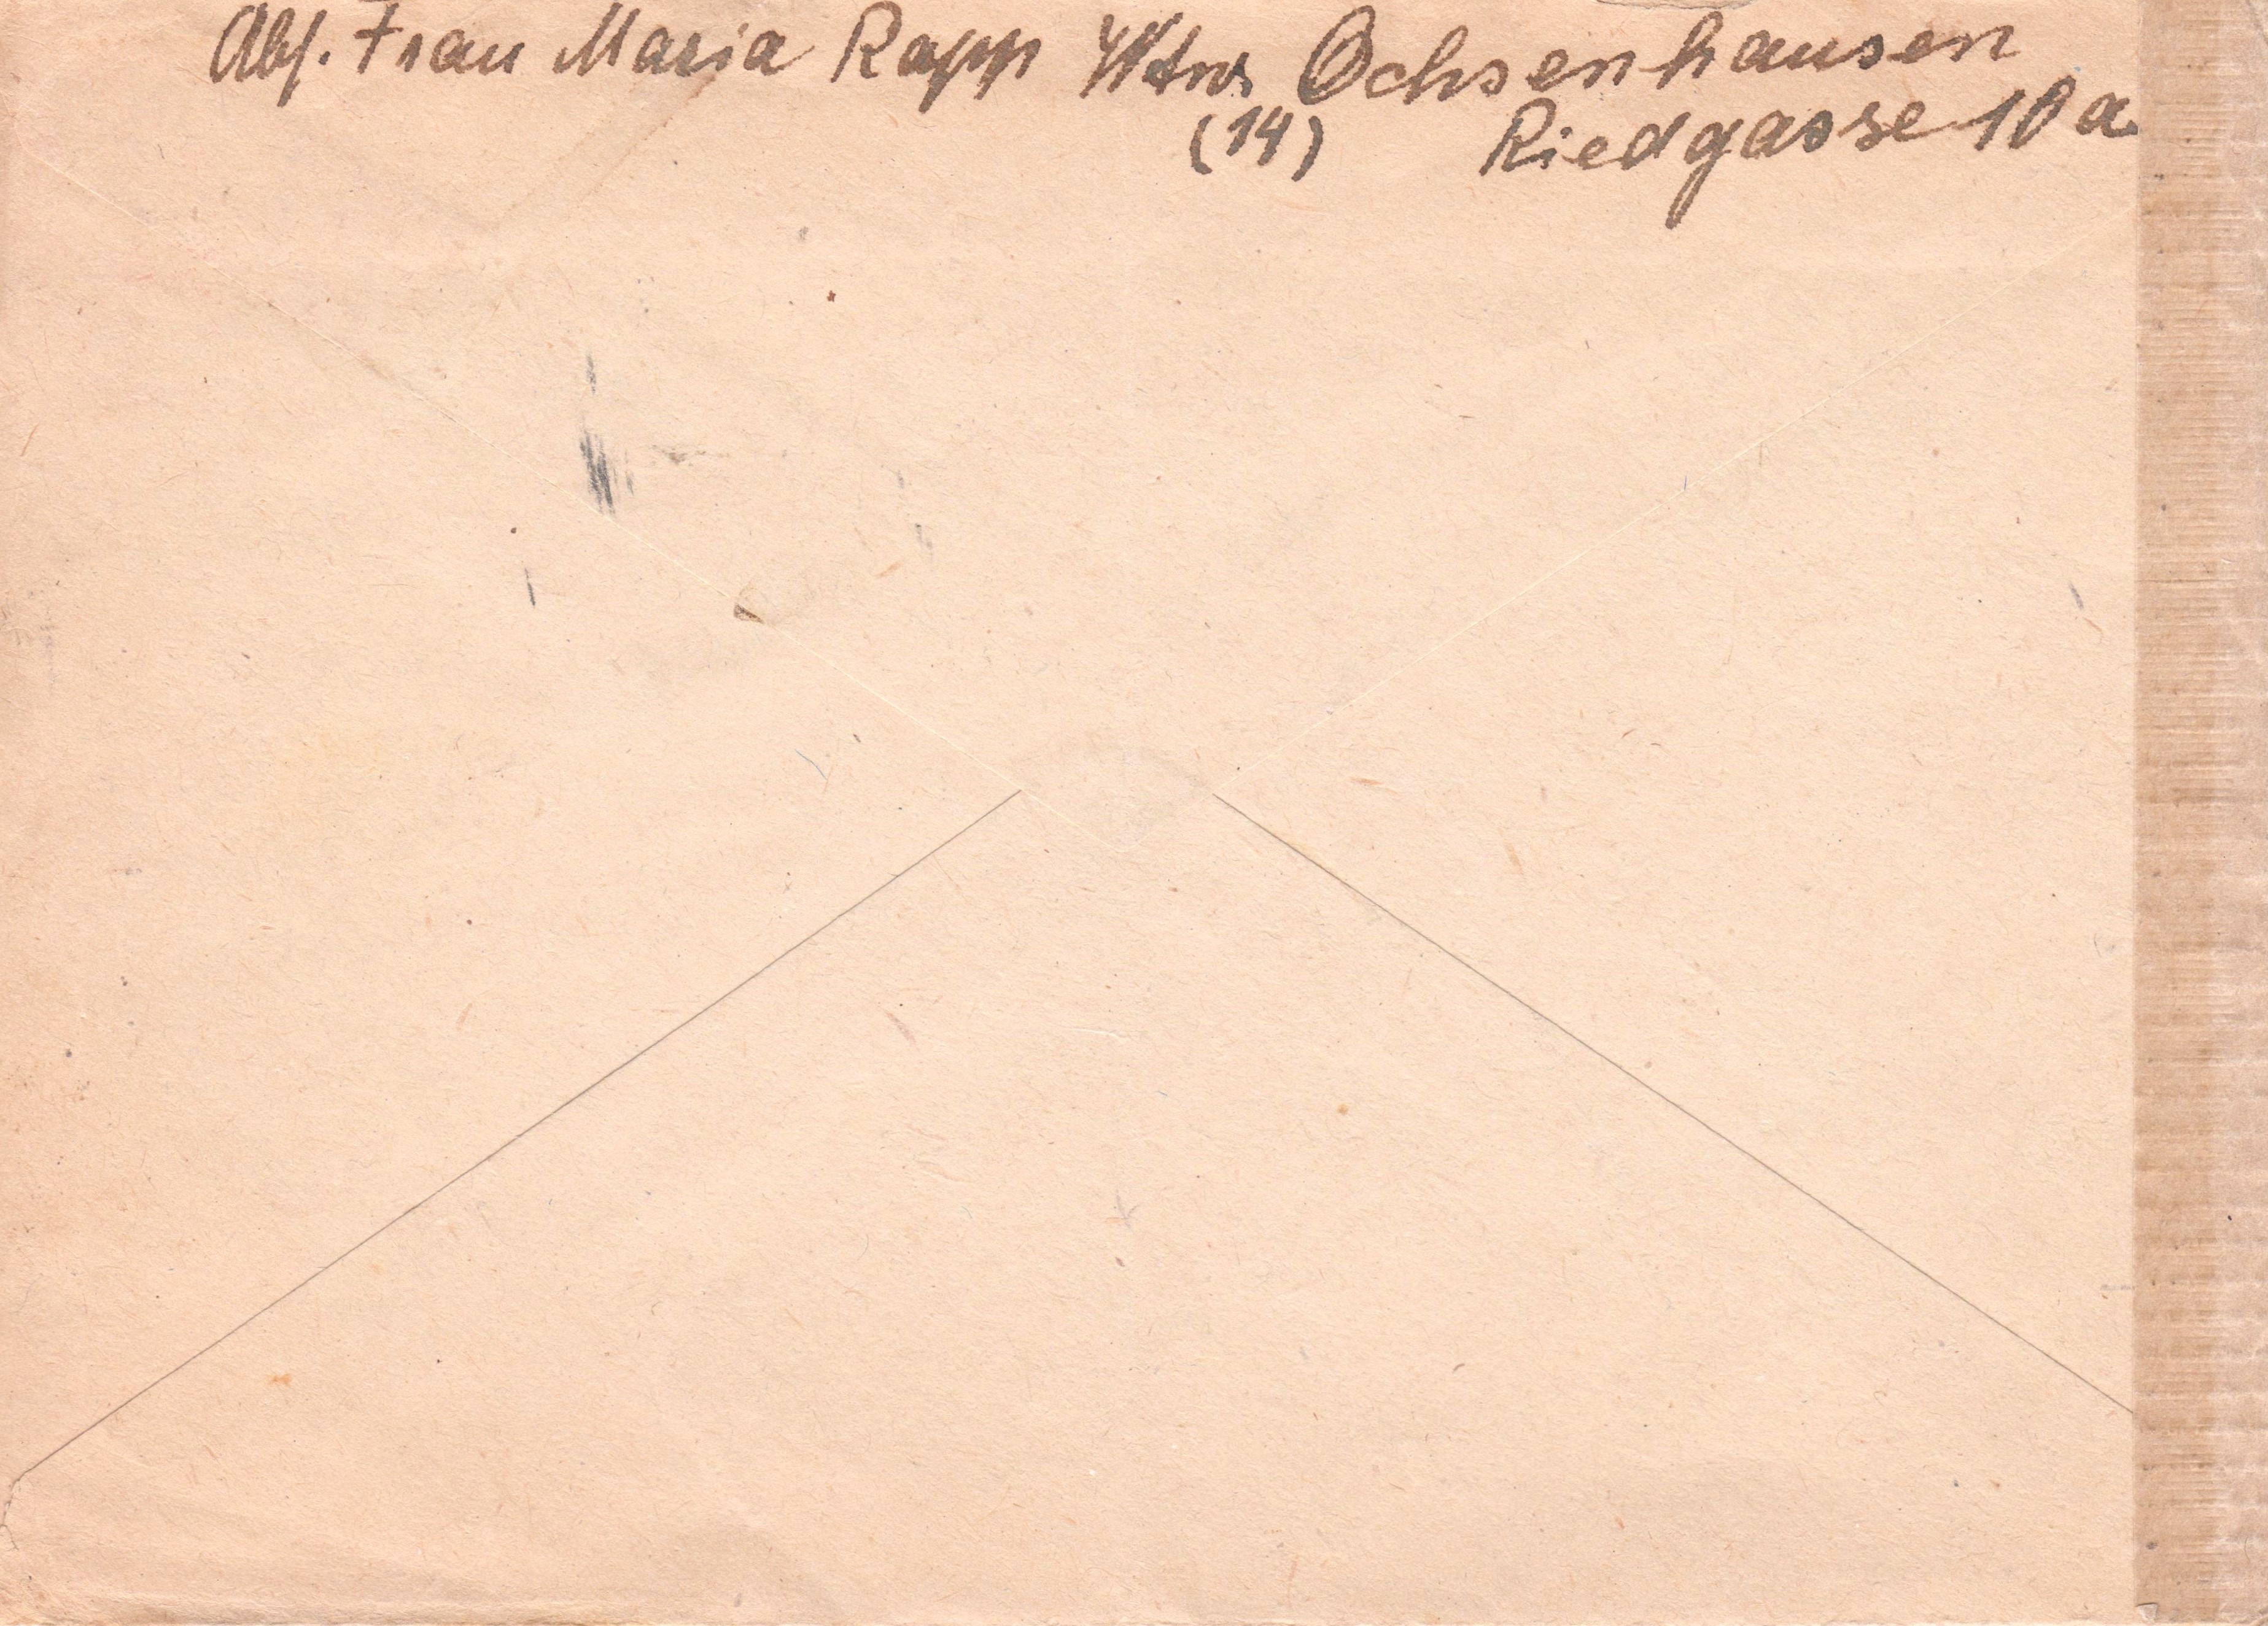 Abs. Frau Maria Rapp Wtw. Ochsenhausen
(14) Riedgasse 10 a.